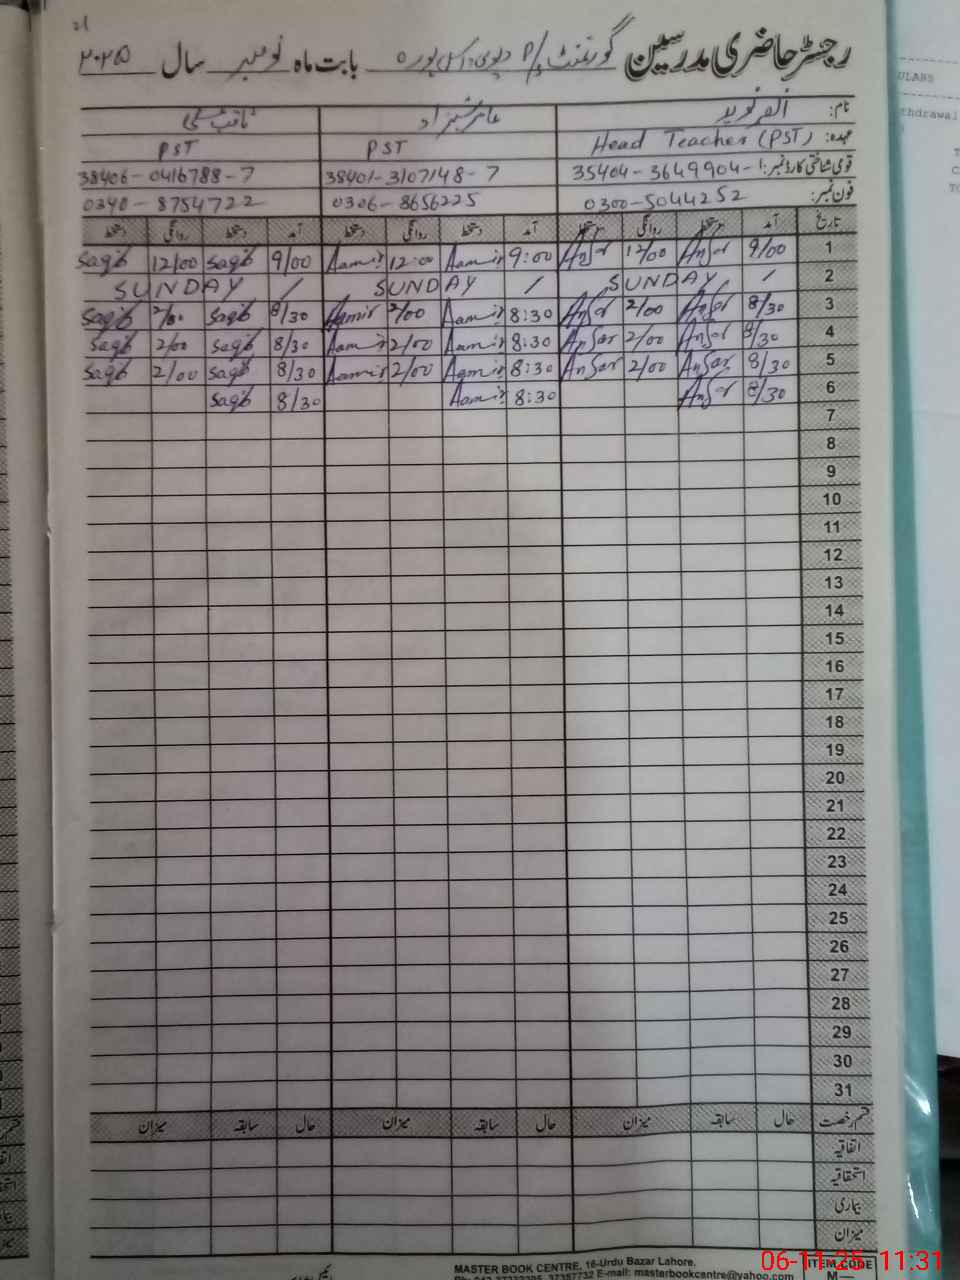 رجسٹر حاضری مدرسین گورنمنٹ P/s بابت ماہ نومبر سال ۲۰۲۵
نام: انصر نوید عامر شہزاد ثاقب
عہدہ: Head Teacher (PST) PST PST
قومی شناختی کارڈ نمبر: 35404-3649904-1 38401-3107148-7 38406-0416788-7
فون نمبر: 0300-5044252 0306-8656225 0340-8754722
تاریخ آمد دستخط روانگی دستخط آمد دستخط روانگی دستخط آمد دستخط روانگی دستخط
1 9/00 Ansar 12/00 Ansar 9:00 Aamir 12:00 Aamir 9/00 Saqib 12/00 Saqib
2 / SUNDAY / SUNDAY / SUNDAY
3 8/30 Ansar 2/00 Ansar 8:30 Aamir 2/00 Aamir 8/30 Saqib 2/00 Saqib
4 8/30 Ansar 2/00 Ansar 8:30 Aamir 2/00 Aamir 8/30 Saqib 2/00 Saqib
5 8/30 Ansar 2/00 Ansar 8:30 Aamir 2/00 Aamir 8/30 Saqib 2/00 Saqib
6 8/30 Ansar 8:30 Aamir 8/30 Saqib
7
8
9
10
11
12
13
14
15
16
17
18
19
20
21
22
23
24
25
26
27
28
29
30
31
قسم رخصت حال سابقہ میزان حال سابقہ میزان حال سابقہ میزان
اتفاقیہ
استحقاقیہ
بیماری
میزان
MASTER BOOK CENTRE, 16-Urdu Bazar Lahore.
E-mail: masterbookcentre@yahoo.com
ITEM CODE
06-11-25 11:31
ULABS
thdrawal